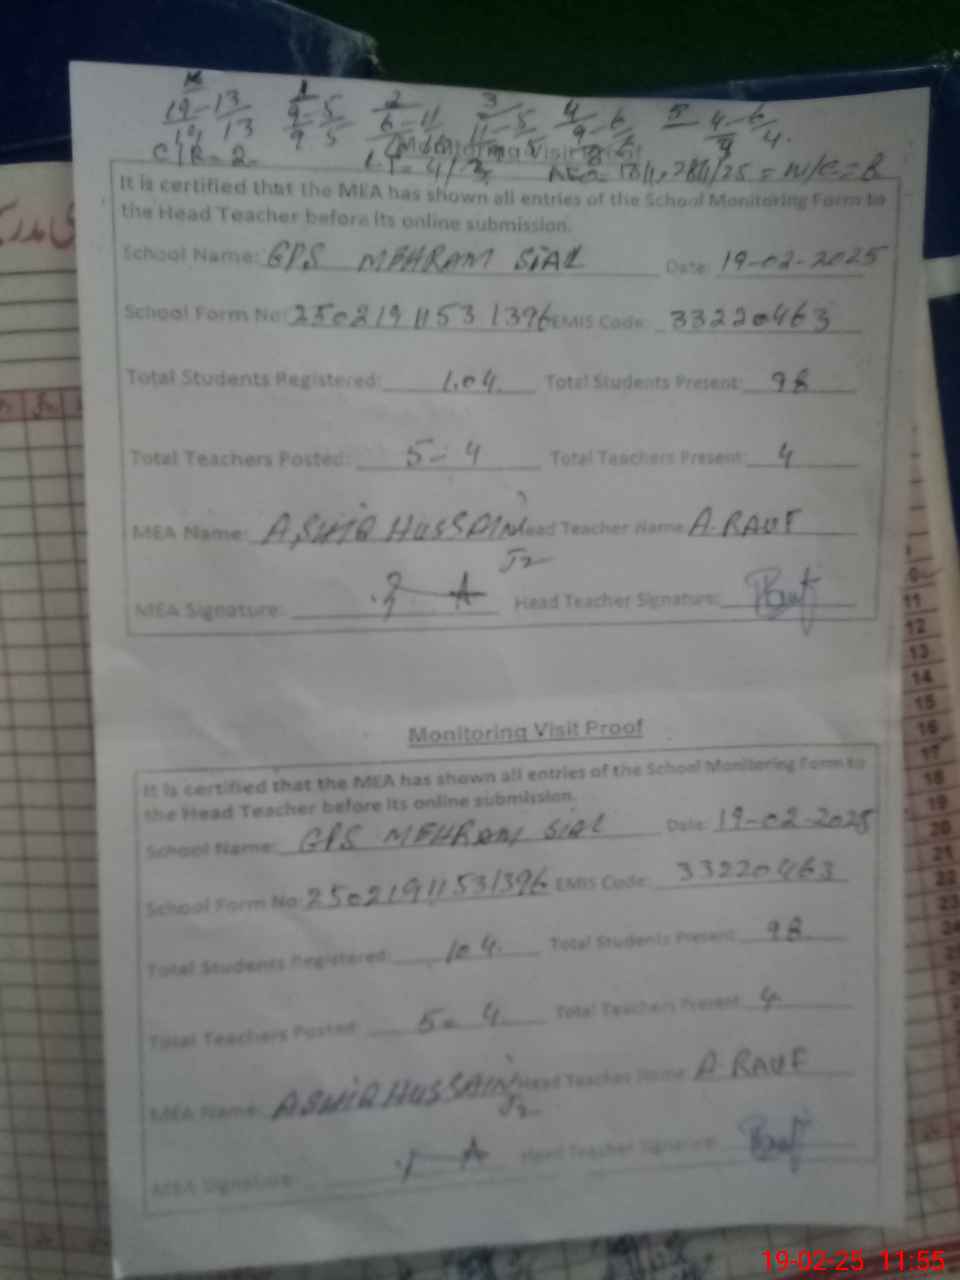 K 1 2 3 4 5
19-13 9-5 6-11 11-5 9-6 4-6
C/R=2
It is certified that the MEA has shown all entries of the School Monitoring Form to
the Head Teacher before its online submission.
School Name: GPS MEHRAM SIAL Date: 19-02-2025
School Form No: 25021911531396 EMIS Code: 33220463
Total Students Registered: 104 Total Students Present: 98
Total Teachers Posted: 5-4 Total Teachers Present: 4
MEA Name: ASHIQ HUSSAIN Head Teacher Name: A-RAUF
MEA Signature: Head Teacher Signature: Rauf
Monitoring Visit Proof
It is certified that the MEA has shown all entries of the School Monitoring Form to
the Head Teacher before its online submission.
School Name: GPS MEHRAM SIAL Date: 19-02-2025
School Form No: 25021911531396 EMIS Code: 33220463
Total Students Registered: 104 Total Students Present: 98
Total Teachers Posted: 5-4 Total Teachers Present: 4
MEA Name: ASHIQ HUSSAIN Head Teacher Name: A-RAUF
MEA Signature: Head Teacher Signature: Rauf
11
12
13
14
15
16
17
18
19
20
21
22
23
24
19-02-25 11:55